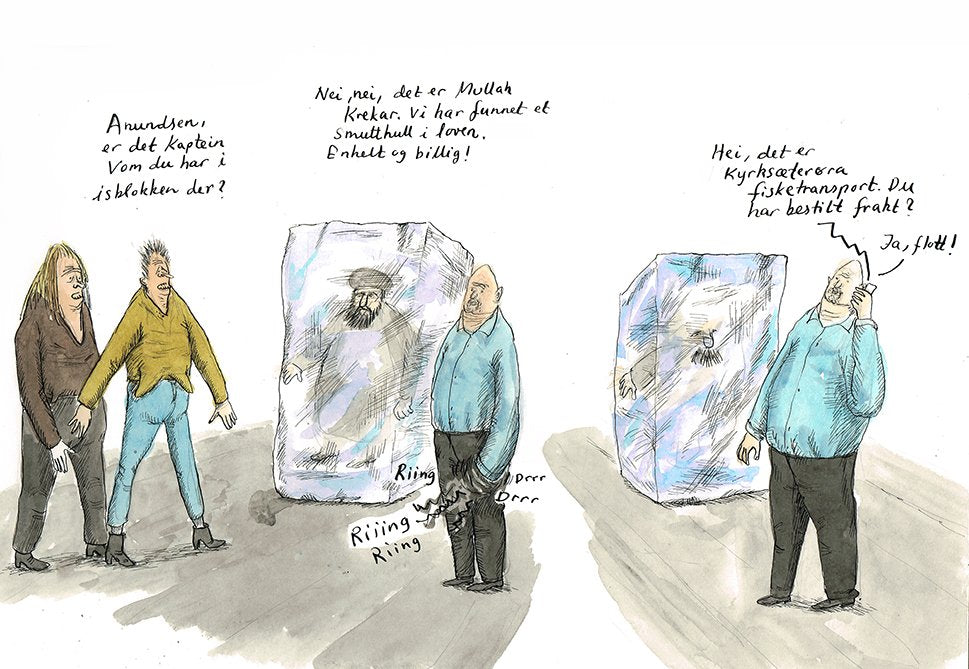 Anundsen,
er det Kaptein
Vom du har i
isblokken der?
Nei, nei, det er Mullah
Krekar. Vi har funnet et
smutthull i loven.
Enkelt og billig!
Riing
Riiing
Riing
Drrr
Drrr
Hei, det er
Kyrksæterøra
fisketransport. Du
har bestilt frakt?
Ja, flott!